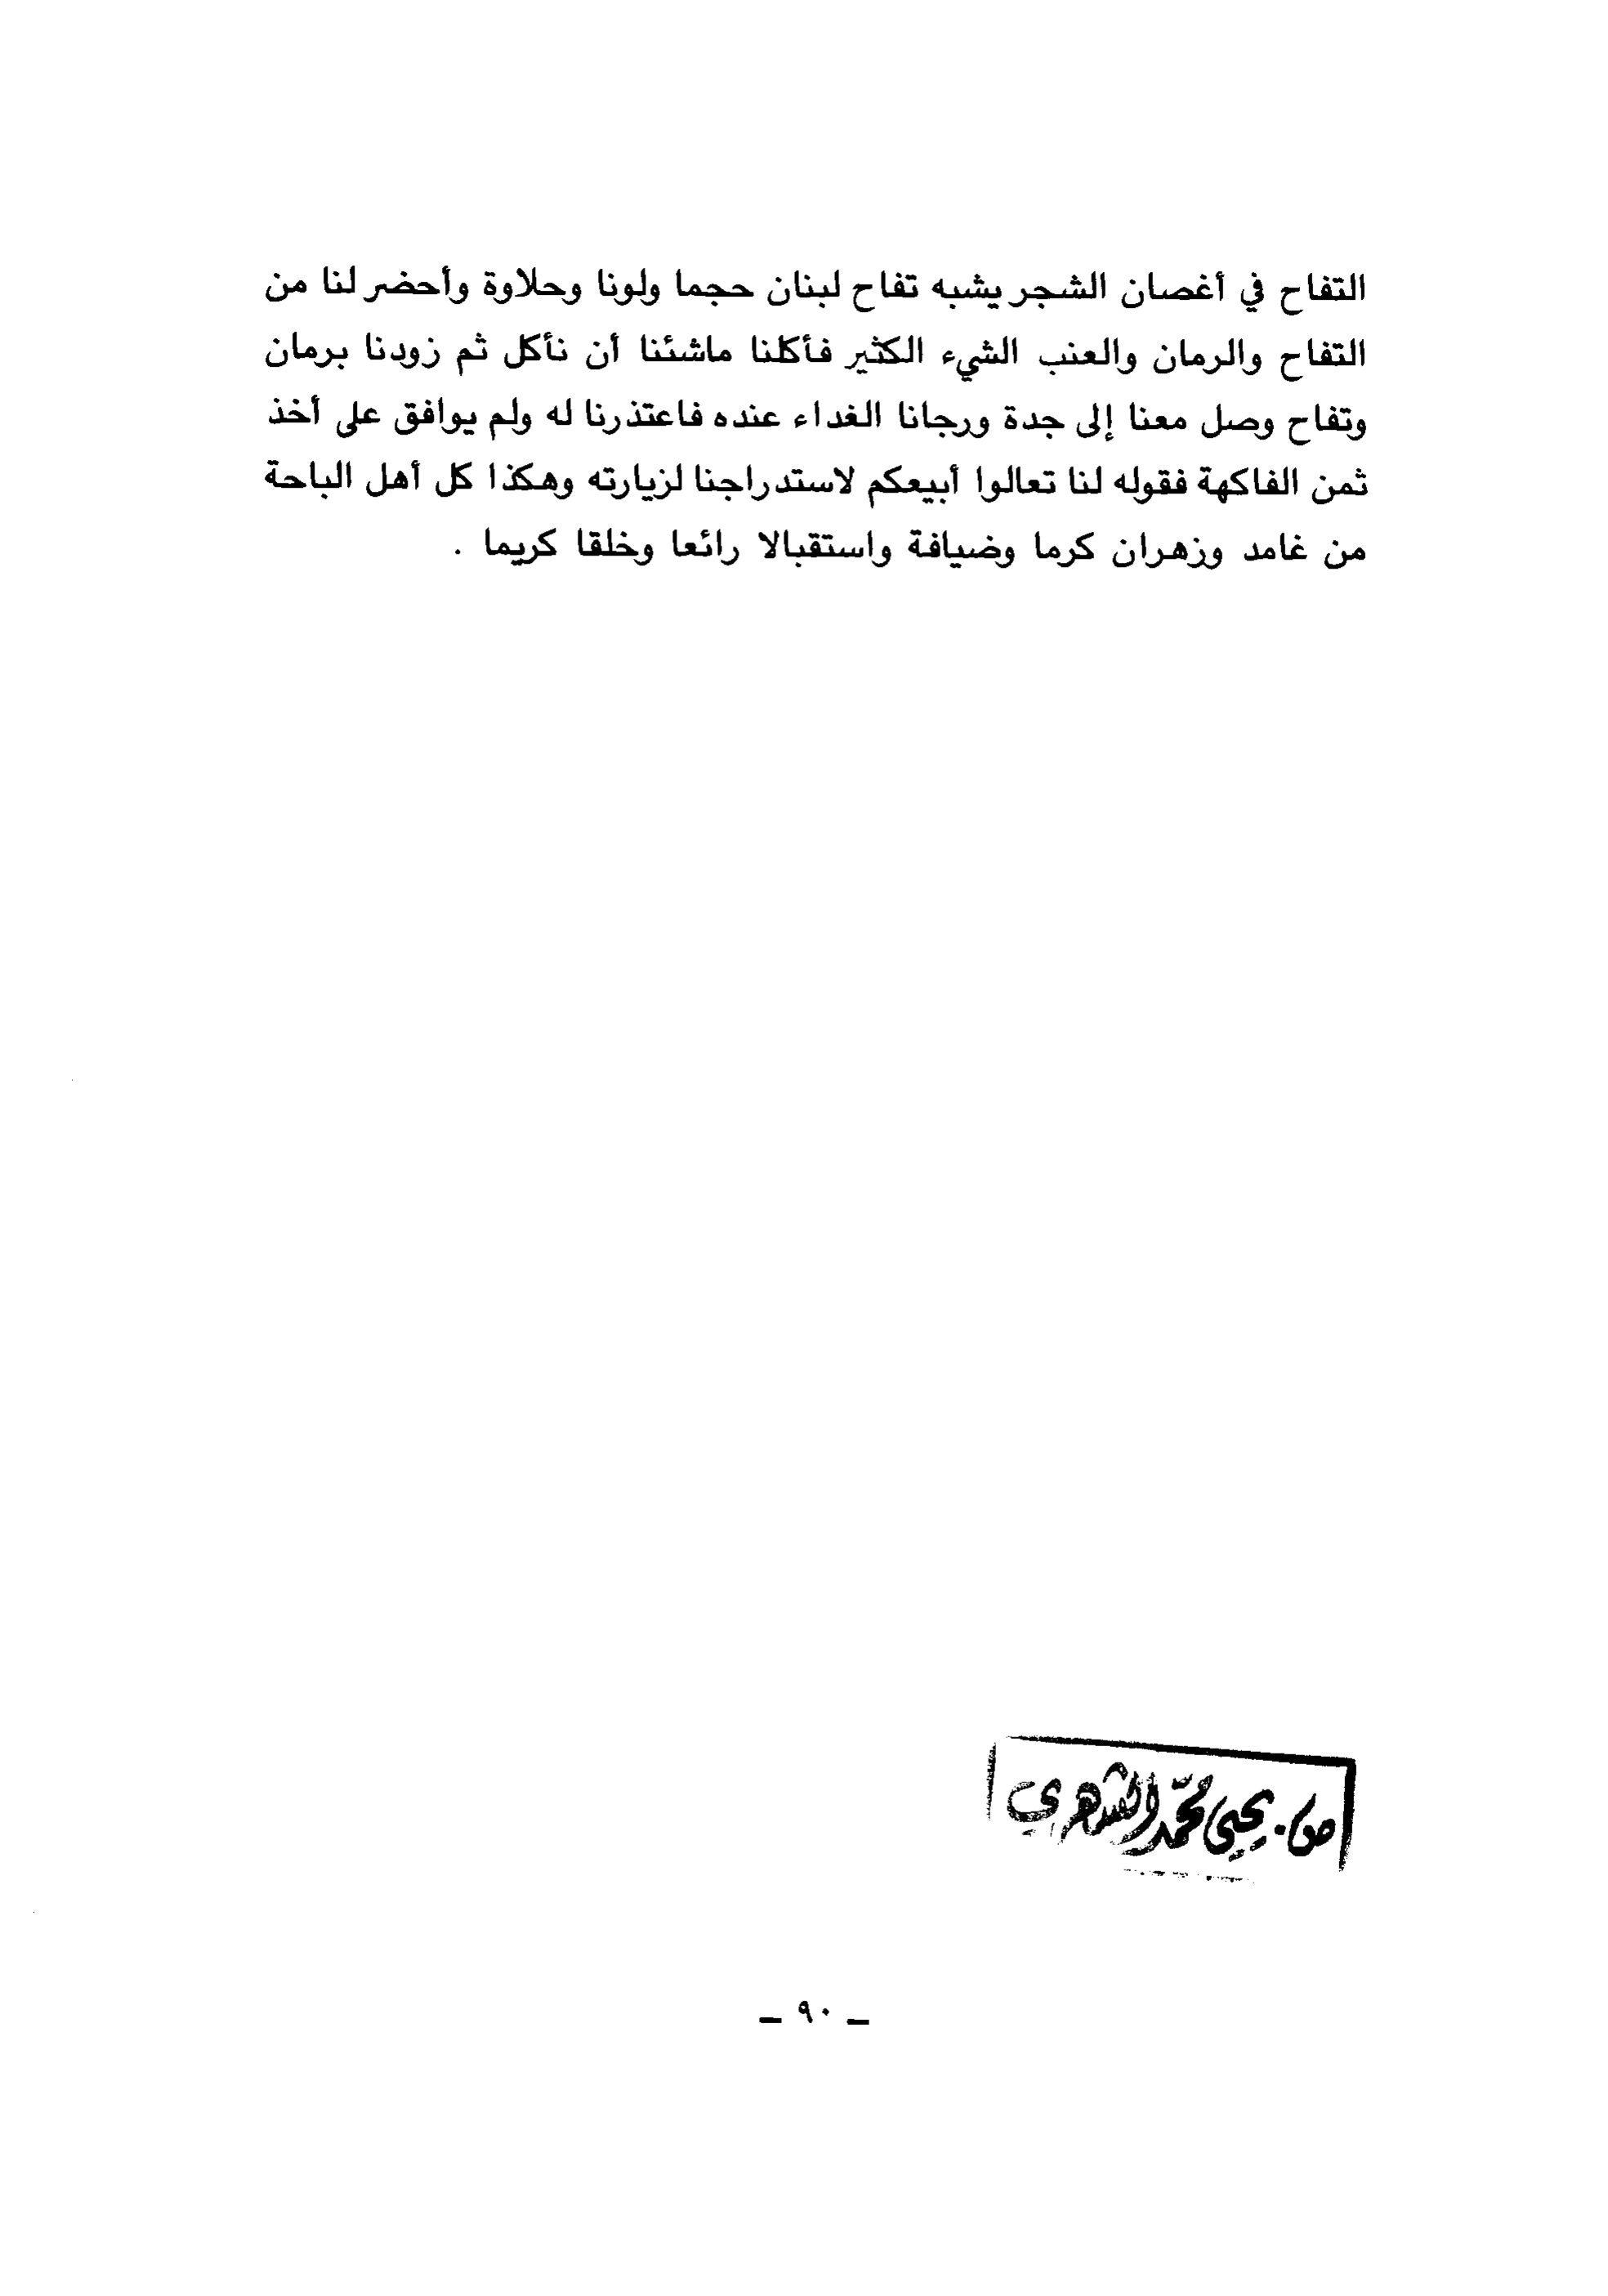 التفاح في أغصان الشجر يشبه تفاح لبنان حجما ولونا وحلاوة وأحضر لنا من
التفاح والرمان والعنب الشيء الكثير فأكلنا ماشئنا أن نأكل ثم زودنا برمان
وتفاح وصل معنا إلى جدة ورجانا الغداء عنده فاعتذرنا له ولم يوافق على أخذ
ثمن الفاكهة فقوله لنا تعالوا أبيعكم لاستدراجنا لزيارته وهكذا كل أهل الباحة
من غامد وزهران كرما وضيافة واستقبالا رائعا وخلقا كريما .
يحيى محمد الشهري
– ٩٠ –